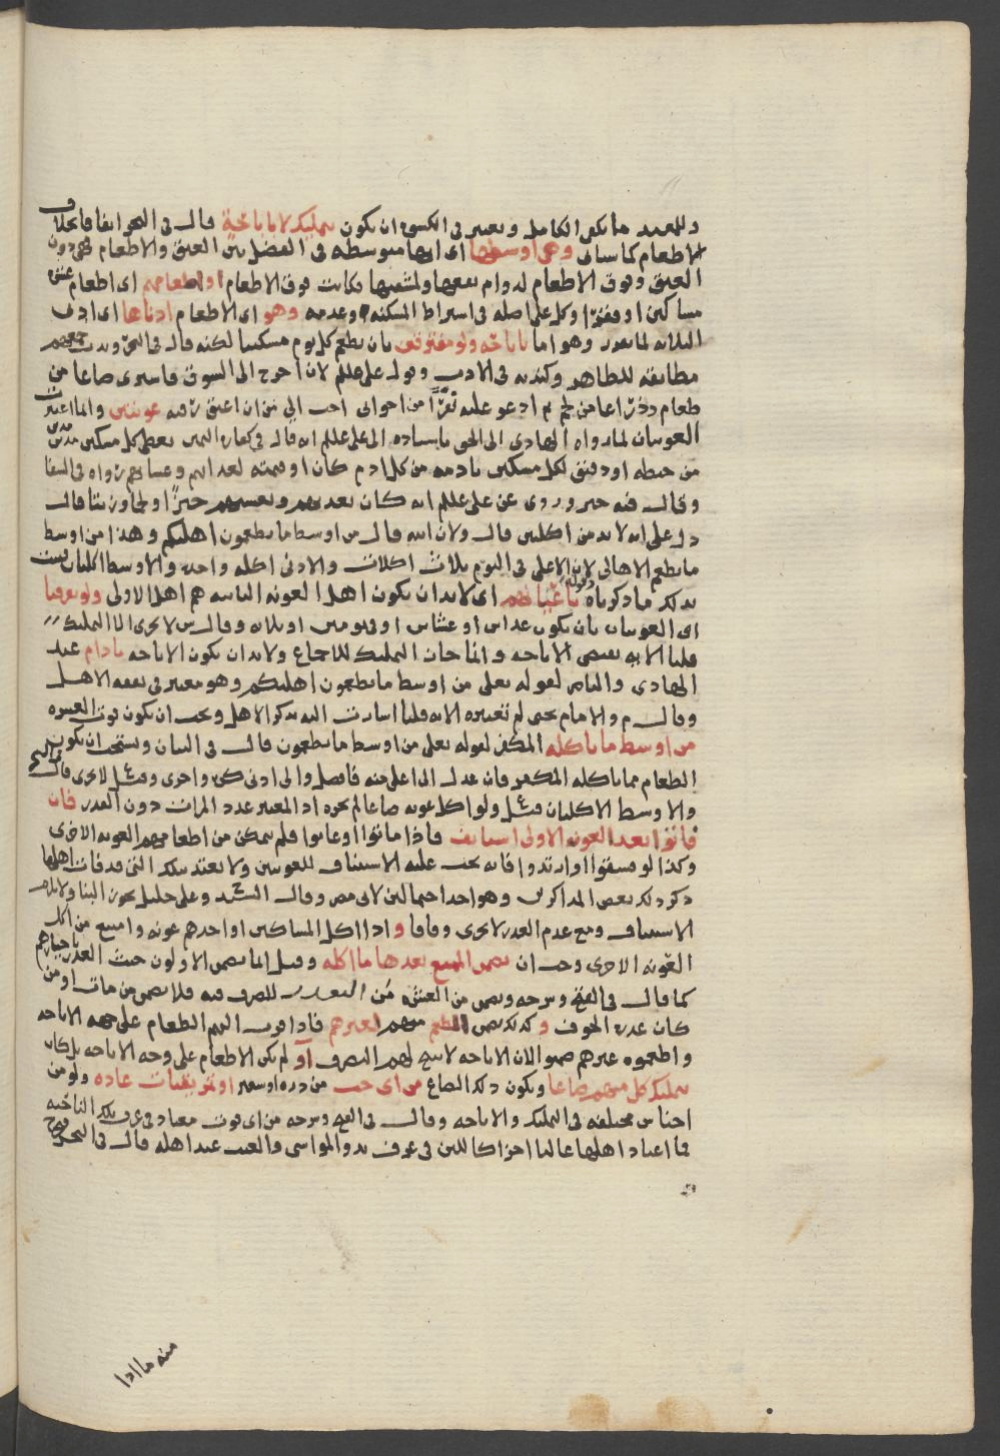 وللعبد ما يكفي الكامل ويعتبر في الكسوة ان يكون تمليكا لا باباحة قال في البحر اتفاقا بخلاف
الاطعام كما سيأتي وهي اوسطها اي انها متوسطة في الفضل بين العتق والاطعام فهي دون
العتق وفوق الاطعام لدوام نفعها ولمشقتها فكانت فوق الاطعام او اطعامهم اي اطعام عشرة
مساكين او وكل على اصله في اشتراط المسكنة وعدمه وهو اي الاطعام ادناها اي ادنى
الثلاثة لما وهو اما باباحة ولو مفترقين بان يطعم كل يوم مسكينا لكنه قال في البحر وندب جمعهم
مطابقة للظاهر وكندبه في الادب وقول علي عليلم لان اخرج الى السوق فاشتري صاعا من
طعام وذراعا من لحم ثم ادعو عليه نفرا من اخواني احب الي من ان اعتق رقبة عونتين وانما اعتبرت
العونتان لما رواه الهادي الى الحق باسناده الى علي عليلم انه قال في كفارة اليمين يعطي كل مسكين مدين
من حنطة او دقيق لكل مسكين بادمه من كل ادم كان او قيمته لغدائهم وعشائهم رواه في الشفا
وقال فيه خبر وروي عن علي عليلم انه كان يغديهم ويعشيهم خبزا او لحما وزيتا قال
دل على انه لا بد من اكلتين قال ولان الله قال من اوسط ما تطعمون اهليكم وهذا من اوسط
ما يطعم الاهالي لان الاعلى في اليوم ثلاث اكلات والادنى اكلة واحدة والاوسط اكلتان فثبت
بذلك ما ذكرناه قوله باعيانهم اي لا بد ان يكون اهل العونة الثانية هم اهل الاولى ولو تفرقتا
اي العونتان بان يكون غداءين او عشاءين او في يومين او ثلاثة وقال ن لا يجزي الا التمليك
قلنا الاية تقتضي الاباحة وانما جاز التمليك للاجماع ولا بد ان يكون الاباحة بادام عند
الهادي والناصر لقوله تعالى من اوسط ما تطعمون اهليكم وهو معتبر في نفقة الاهل
وقال م والامام يحيى لم تعتبره الاية قلنا اشارت اليه بذكر الاهل ويجب ان يكون قوت العشرة
من اوسط ما ياكله المكفر لقوله تعالى من اوسط ما تطعمون قال في البيان ويستحب ان يكون
الطعام مما ياكله المكفر فان عدل الى اعلى منه فافضل والى ادنى كره واجزى وقيل لا يجزى قال في البحر
والاوسط الاكلتان قيل ولو اكل عونه صاعا لم يجزه اذ المعتبر عدد المرات دون القدر فان
فاتوا بعد العونة الاولى استأنف فاذا ماتوا او غابوا فلم يتمكن من اطعامهم العونة الاخرى
وكذا لو فسقوا او ارتدوا فانه يجب عليه الاستئناف للعونتين ولا يعتد بتلك التي قد فات اهلها
ذكر ذلك بعض المذاكرين وهو احد احتمالين لابي مضر وقال السيد وعلي خليل يجوز البنا ولا يلزم
الاستئناف ومع عدم العذر لا يجزى وفاقا واذا اكل المساكين او احدهم عونه وامتنع من اكل
العونة الاخرى وجب ان يضمن الممتنع بعدها ما اكله وقيل انما يضمن الاولون حيث العذر باختيارهم
كما قال في الفتح وشرحه ويضمن من العشرة من التعذر للصرف فيه فلا يضمن من مات او من
كان عذره الخوف وكذلك يضمن المطعم منهم لغيرهم فاذا قرب اليهم الطعام على جهة الاباحة
واطعموه غيرهم ضمنوا لان الاباحة لا تبيح لهم التصرف او لم يكن الاطعام على وجه الاباحة بل كان
تمليك كل منهم صاعا ويكون ذلك الصاع من اي حب من ذرة او شعير او تمر يقتات عادة ولو من
اجناس مختلفة في التمليك والاباحة وقال في الفتح وشرحه من اي قوت معتاد في عرف تلك الناحية
فما اعتاد اهلها غالبا اجزا كاللبن في عرف بدو المواشي والعنب عند اهله قال في البحر
منه ما اذا